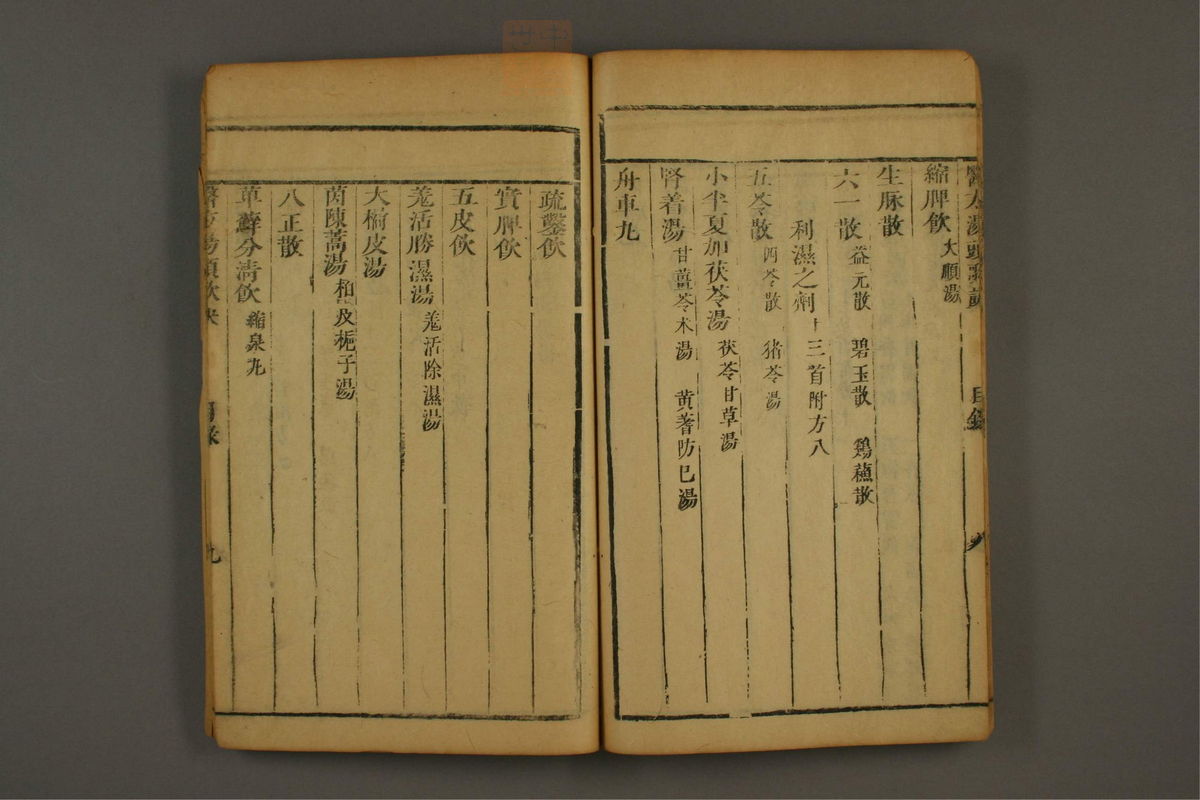 醫方湯頭歌訣 目錄 八
縮脾飲 大順湯
生脉散
六一散 益元散 碧玉散 鷄蘇散
利濕之劑十三首附方八
五苓散 四苓散 猪苓湯
小半夏加茯苓湯 茯苓甘草湯
腎着湯 甘薑苓术湯 黄蓍防巳湯
舟車丸
疏鑿飲
實脾飲
五皮飲
羗活勝濕湯 羗活除濕湯
大橘皮湯
茵陳蒿湯 柏皮梔子湯
八正散
萆薢分清飲 縮泉丸
醫方湯頭歌 目錄 九